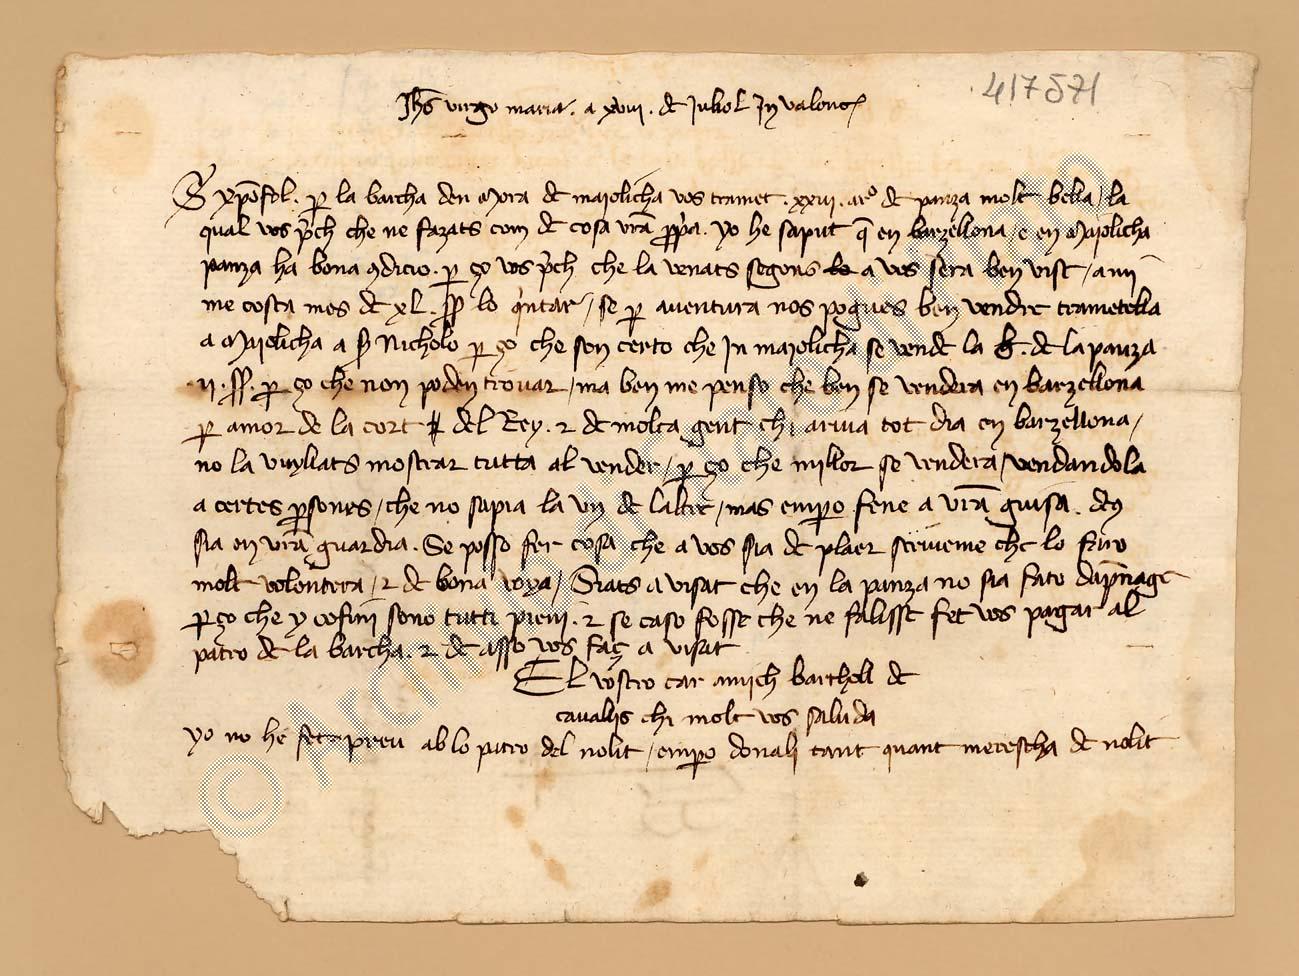 417571
Jhs virgo maria. a xviii. de juliol Jn valenc
Sr xpofol. per la barcha den Mora de maiolicha vos tramet. xxvi. aro de panza molt bella / la
qual vos prech che ne fazats com de cosa vra ppa. yo he saput q en barzellona / e en Maiolicha
panza ha bona 9dicio. per ço vos prech che la venats segons a vos sera ben vist / a mi
me costa mes de xl. ss lo quintar / se per aventura nos pogues ben vendre trametella
a Maiolicha a sr Nicholo per ço che son certo che Jn maiolicha se vende la de la panza
ii. ss. per ço che non poden trovar / ma ben me penso che ben se vendera en barzellona
per amor de la cort del Rey. & de molta gent chi ariva tot dia en barzellona /
no la vuyllats mostrar tutta al vender / per ço che millor se vendera / vendandola
a certes persones / che no sapia la un de laltre / mas empero fene a vra guisa. de9
sia en vra guardia. Se posso fer cosa che a vos sia de plaer scriveme che lo faro
molt volontera / & de bona voya / Siats avisat che en la panza no sia fato dapnage
per ço che y cofini sono tutti pieni. & se caso fosse che ne falisse fet vos pagar al
patro de la barcha. & de asso vos faç a visat
El vostro car amich barthell de
cavallis chi molt vos saluda
yo no he fet preu ab lo patro del nolit / empero donali tant quant merescha de nolit